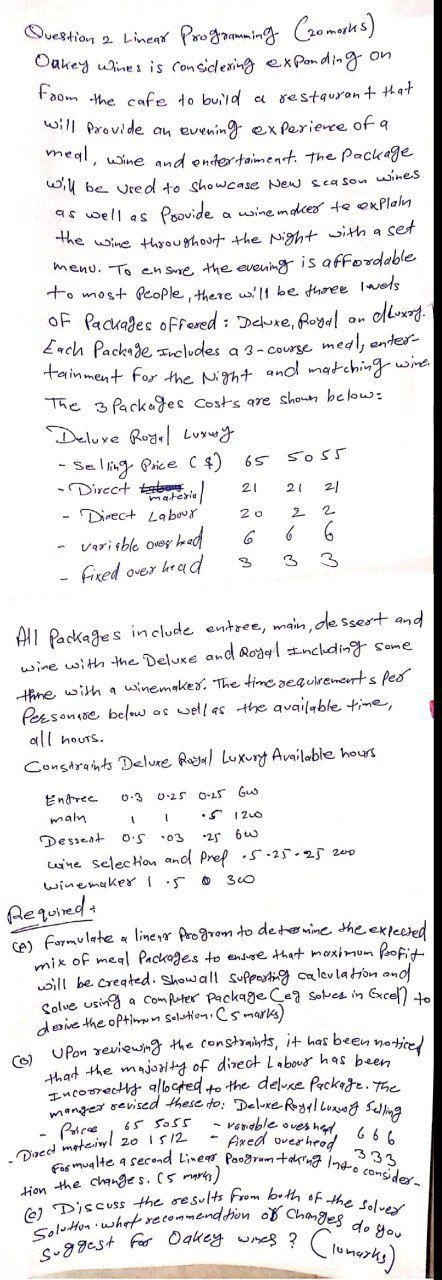 Question 2 Linear Programming. (20 marks)
Oakey Wines is considering expanding on
from the cafe to build a restaurant that
will Provide an evening experience of a
meal, wine and entertaiment. The Package
will be used to showcase New season wines
as well as Provide a winemaker to explain
the wine throughout the Night with a set
menu. To ensure the evening is affordable
to most People, there will be three levels
of Packages offered: Deluxe, Royal an dLuxury.
Each Package Includes a 3-course meal, enter-
tainment for the Night and matching wine.
The 3 Packages Costs are shown below:
Deluxe Royal Luxury
- Selling Price ($) 65 50 55
- Direct material 21 21 21
- Direct Labour 20 2 2
- variable over head 6 6 6
- fixed over head 3 3 3
All Packages include entree, main, dessert and
wine with the Deluxe and Royal Including some
time with a winemaker. The time requirements Per
Person are below as well as the available time,
all hours.
Constraints Deluxe Royal Luxury Available hours
Entree 0.3 0.25 0.25 600
main 1 1 .5 1200
Dessert 0.5 .03 .25 600
wine selection and Prep .5 .25 .25 200
winemaker 1 .5 0 300
Required:
(A) Formulate a linear Program to determine the expected
mix of meal Packages to ensure that maximum Profit
will be created. Show all supporting calculation and
Solve using a computer package (eg solver in Excel) to
derive the optimum solution. (5 marks)
(B) Upon reviewing the constraints, it has been noticed
that the majority of direct Labour has been
Incorrectly allocated to the deluxe Package. The
manger revised these to: Deluxe Royal Luxury Selling
- Price 65 50 55 - variable over head 6 6 6
- Direct material 20 15 12 - fixed overhead 3 3 3
Formualte a second Linear Poogram taking Into consider-
tion the changes. (5 marks)
(C) Discuss the results from both of the solver
Solution. what recommendtion of changes do you
suggest for Oakey wines? (10 marks)